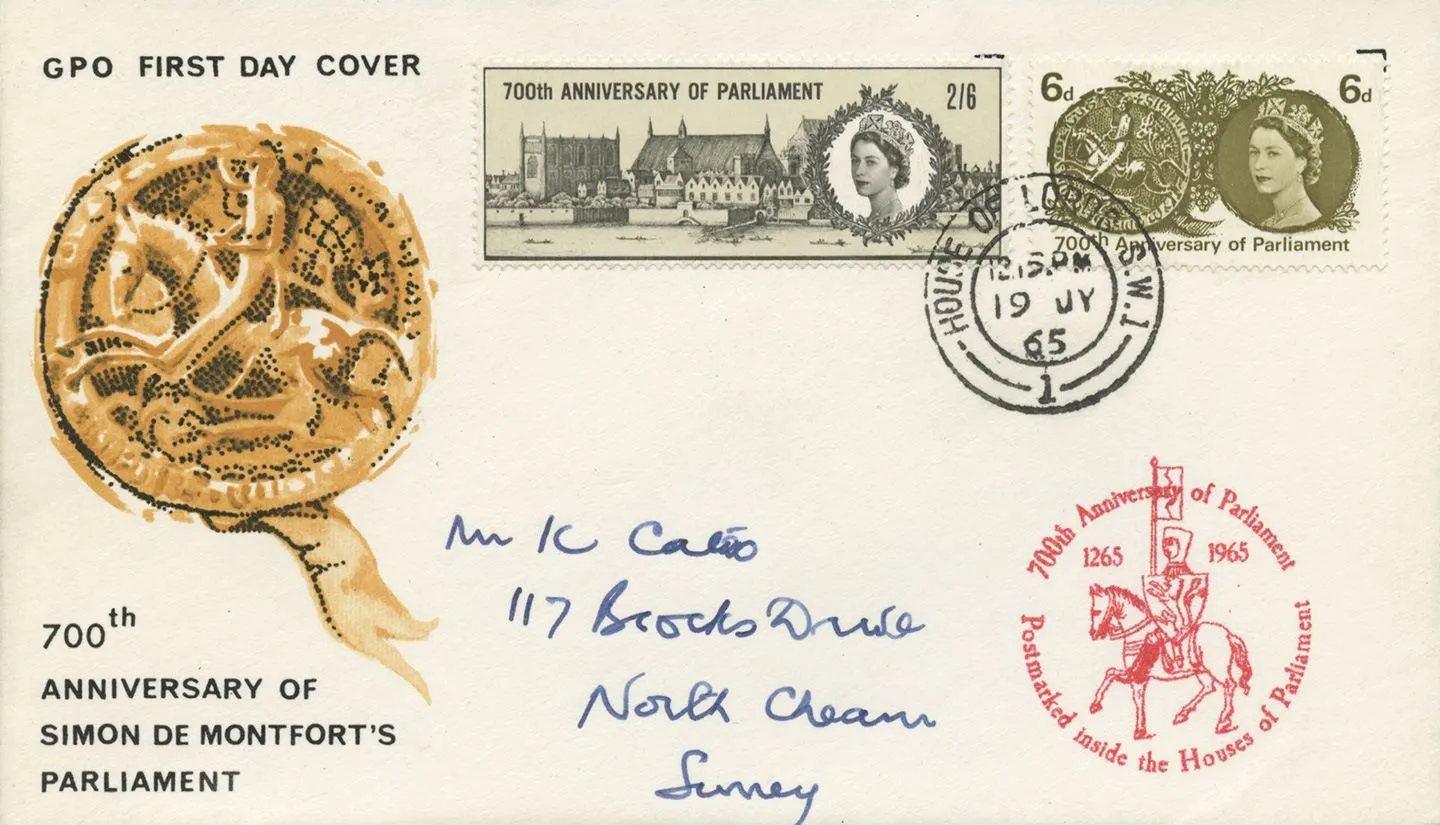 GPO FIRST DAY COVER
700th ANNIVERSARY OF PARLIAMENT 2/6
6d 6d
700th Anniversary of Parliament
HOUSE OF LORDS S.W.1
12.15PM
19 JY
65
1
700th Anniversary of Parliament
1265 1965
Postmarked inside the Houses of Parliament
Mr K
117 Brocks Drive
North Cheam
Surrey
700th
ANNIVERSARY OF
SIMON DE MONTFORT'S
PARLIAMENT